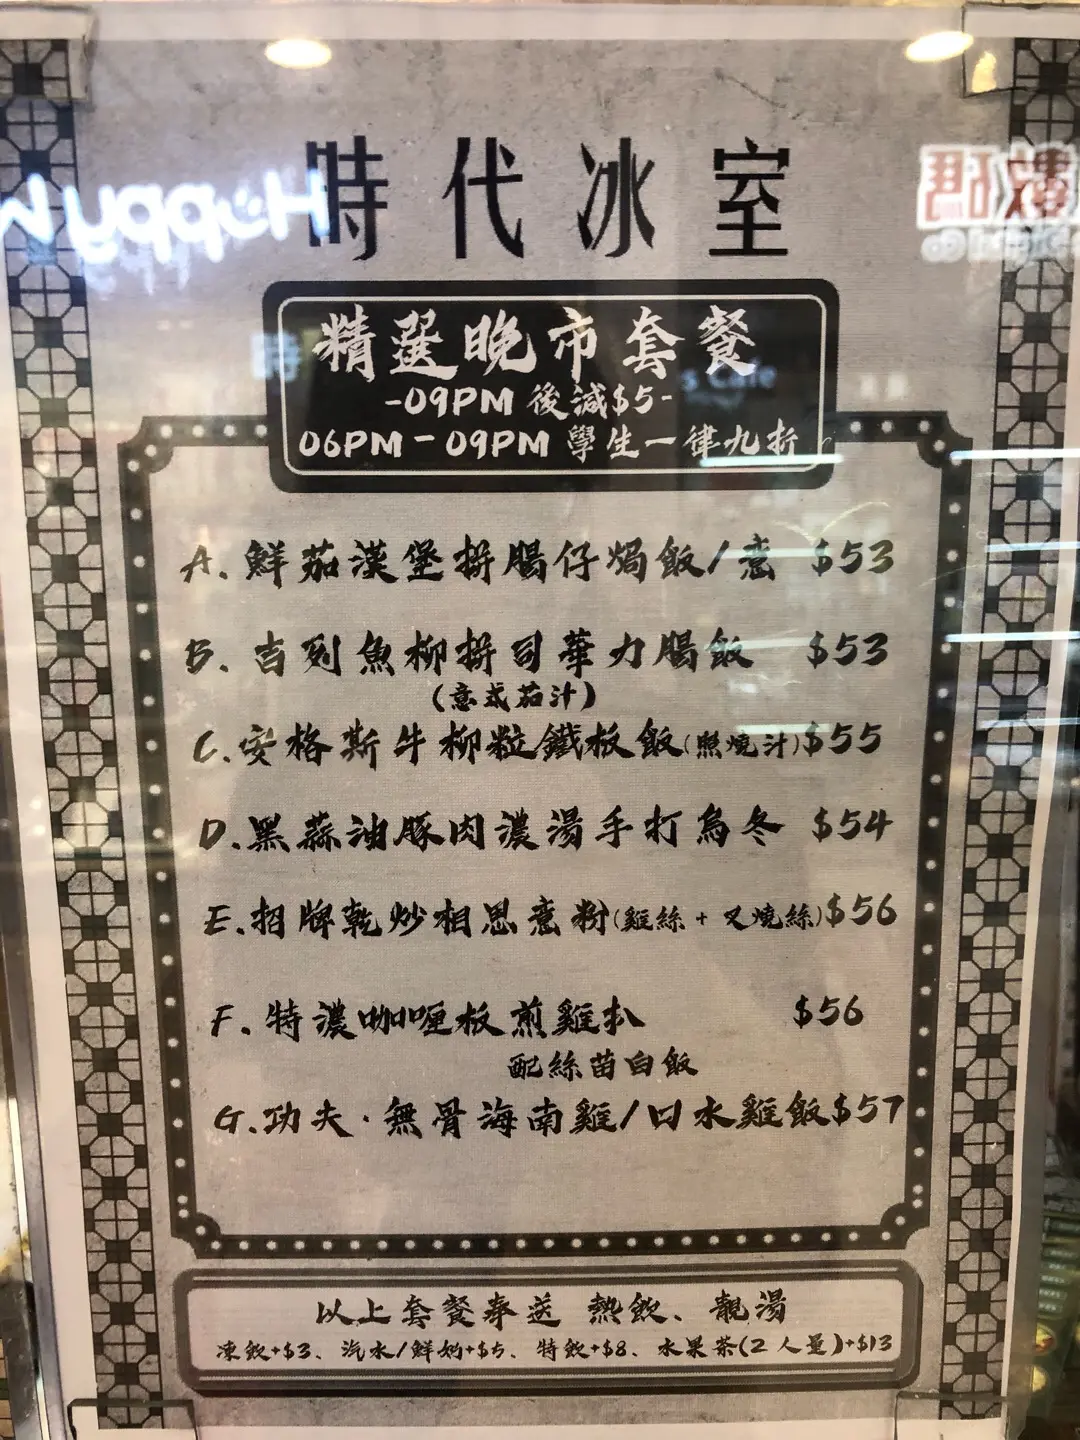 時代冰室
精選晚市套餐
-09PM 後減$5-
06PM - 09PM 學生一律九折
A. 鮮茄漢堡拼腸仔焗飯/意 $53
B. 吉列魚柳拼司華力腸飯 $53
(意式茄汁)
C. 安格斯牛柳粒鐵板飯(照燒汁)$55
D. 黑蒜油豚肉濃湯手打烏冬 $54
E. 招牌乾炒相思意粉(雞絲 + 叉燒絲)$56
F. 特濃咖喱板煎雞扒 $56
配絲苗白飯
G. 功夫·無骨海南雞/口水雞飯$57
以上套餐奉送 熱飲、靚湯
凍飲+$3、汽水/鮮奶+$5、特飲+$8、水果茶(2人量)+$13